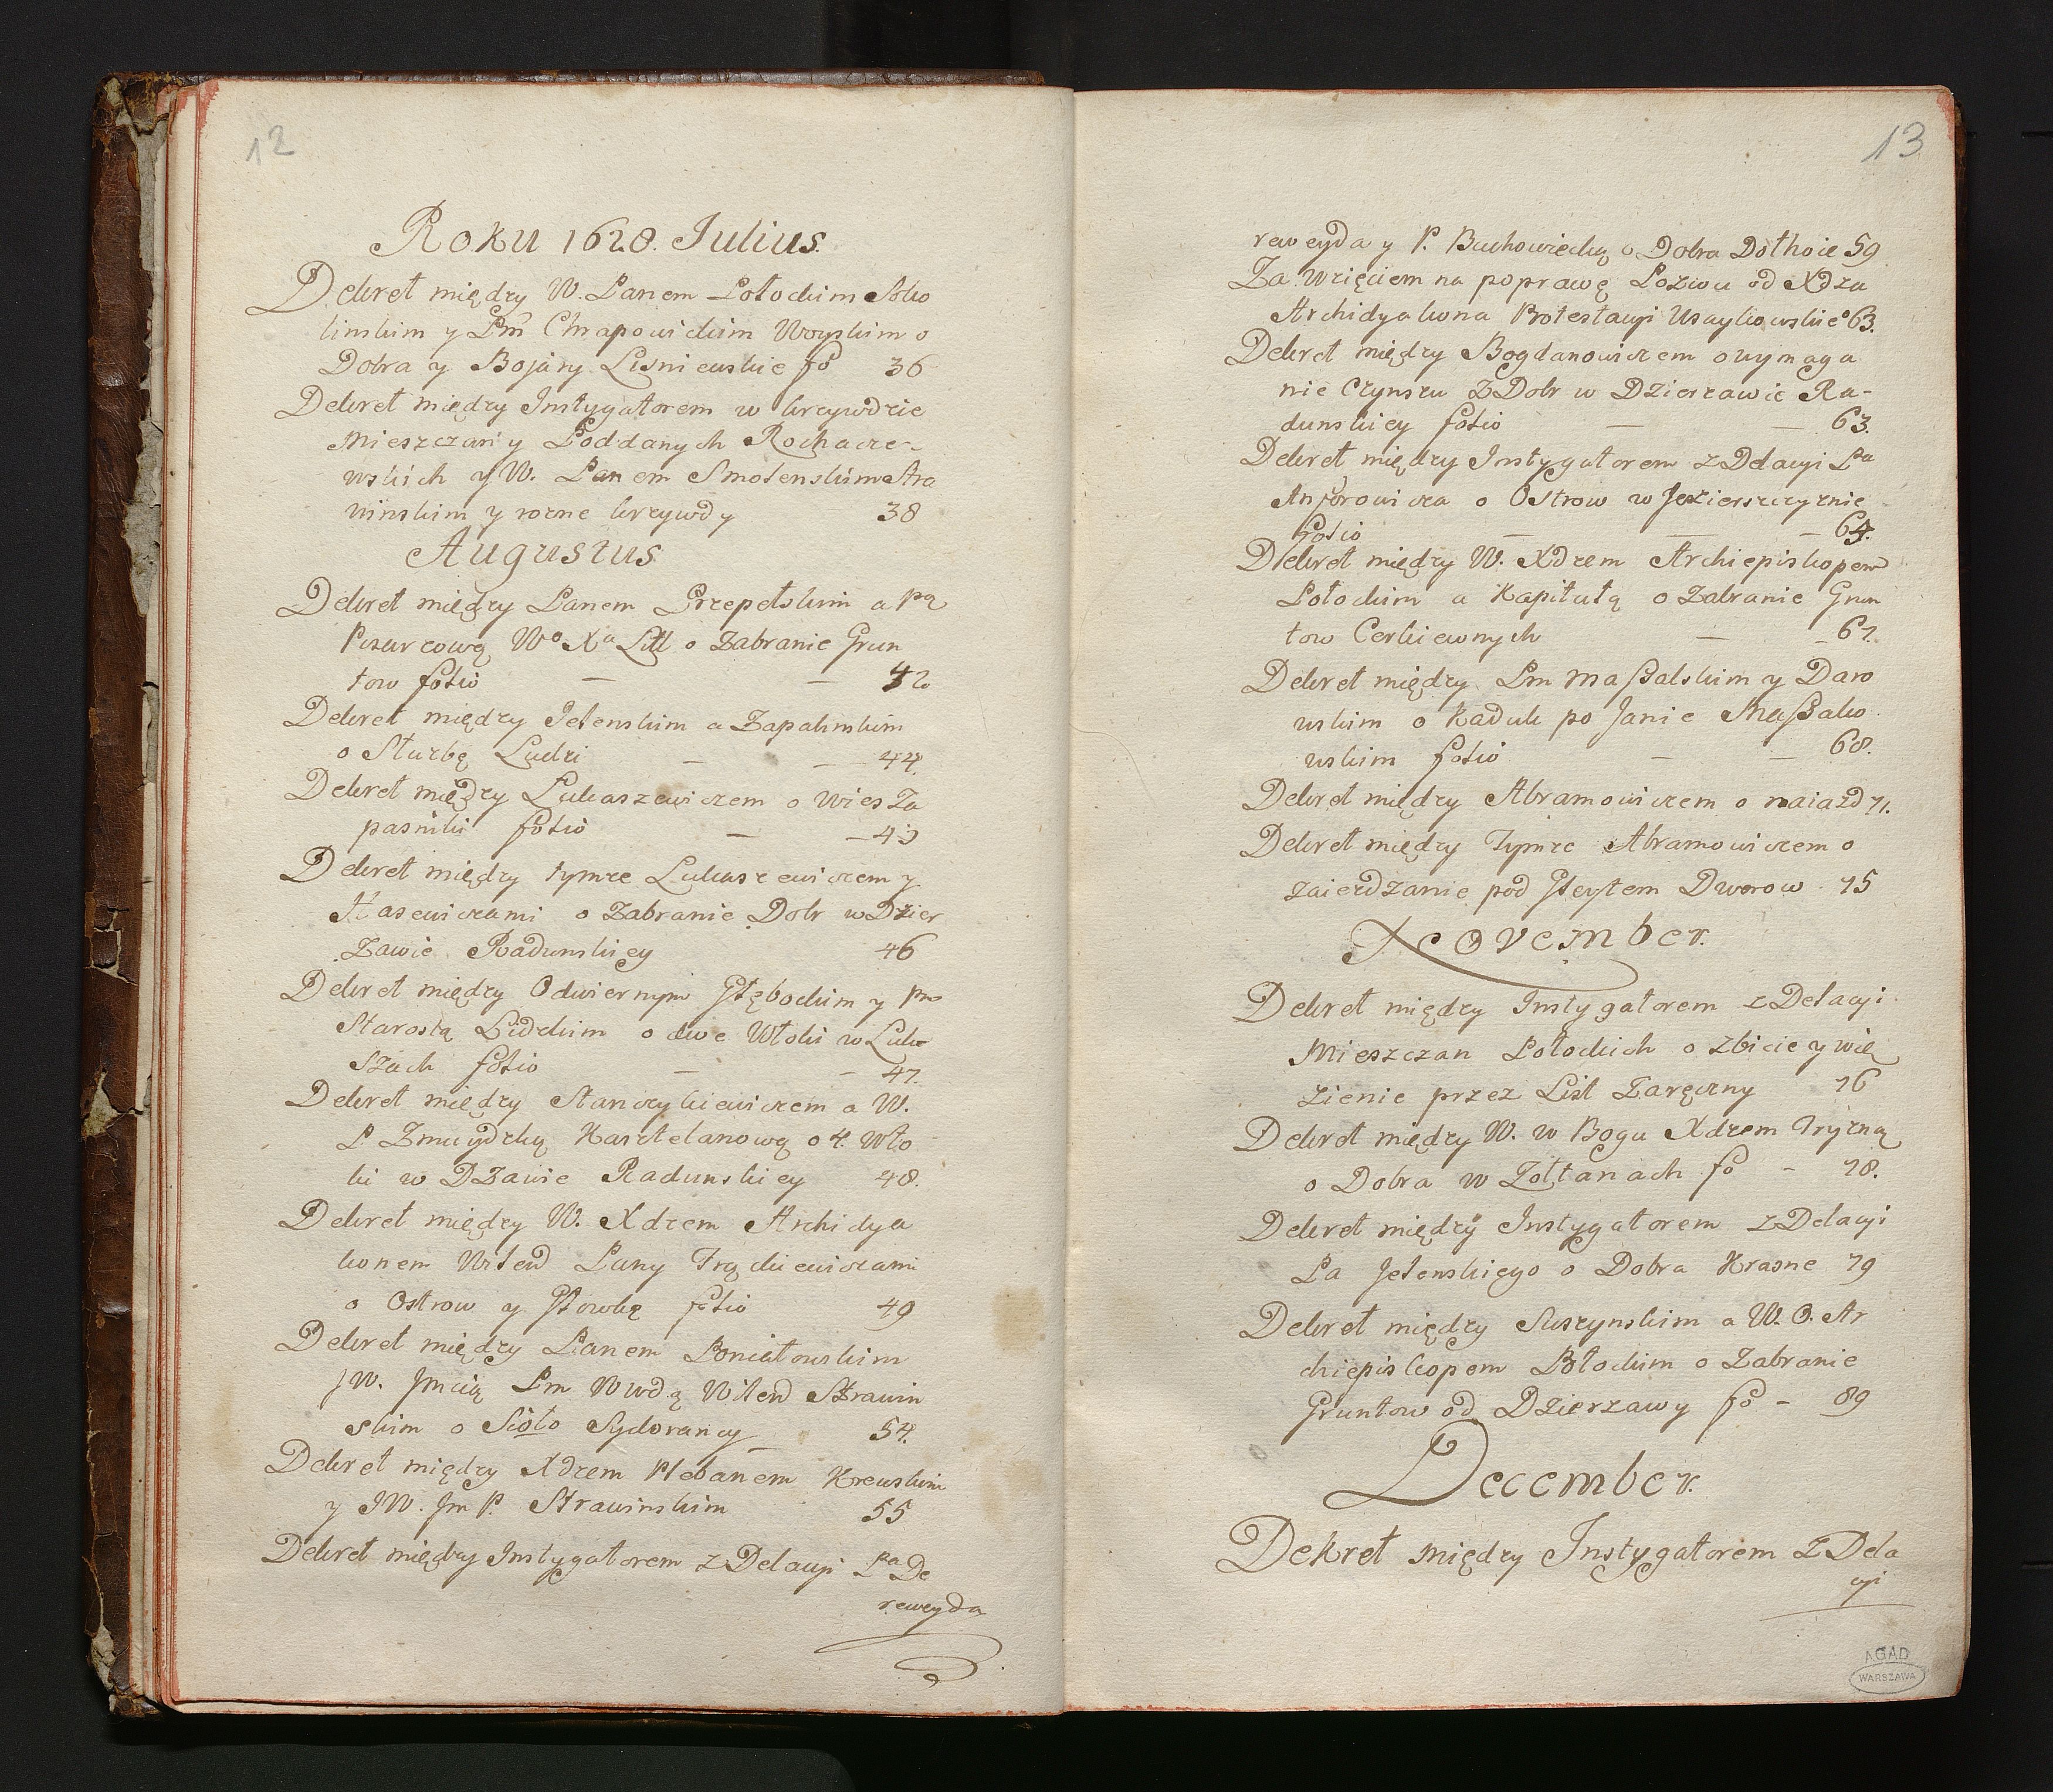 12
Roku 1628. Julius.
Dekret między W. Panem Połockim Soko
linskim y Pm Chrapowickim Woyskim o
Dobra y Bojary Lisniewskie fo 36
Dekret między Instygatorem w krzywdzie
Mieszczan y Poddanych Rochacze-
wskich y W. Panem Smolenskim Stra
winskim y rozne krzywdy 38
Augustus
Dekret między Panem Przepelskim a Pą
Pisarzową Wo Xa Litt o Zabranie Grun
tow folio — — 42
Dekret między Jelenskim a Zapalinskim
o Służbę Ludzi — — 44.
Dekret między Łukaszewiczem o Wies Za
pasniki folio — — 45
Dekret między tymze Łukaszewiczem y
Stasewiczami o Zabranie Dobr w Dzier
zawie Radunskiey 46
Dekret między Odwiernym Głębockim y Pm
Starostą Lidzkim o dwe Włoki w Luko
szach folio — — 47.
Dekret między Stanczykiewiczem a W.
P Zmuydzką Kasztelanową o 4. Wło
ki w DZawie Radunskiey 48.
Dekret między W. Xdzem Archidya
konem Witeb Pany
o Ostrow y Głowkę folio 49
Dekret między Panem Poniatowskim
JW. Jmcią Pm Wwdą Witeb Strawin
skim o Sioło Sydorancy — 54.
Dekret między Xdzem Plebanem Krewskim
y JW. Jm P. Strawinskim 55
Dekret między Instygatorem z Delacyi Pa De
reweyda
13
reweyda y P. Buchowiecką o Dobra Dołhoie 59
Za Wzięciem na poprawę Pozwu od Xdza
Archidyakona Protestacyi 63.
Dekret między Bogdanowiczem o wymaga
nie Czynszu Z Dobr w Dzierzawie Ra-
dunskiey folio — — 63.
Dekret między Instygatorem z Delacyi Pa
Anforowicza o Ostrow w Jezierszczyznie
folio — — — 64.
Dekret między W. Xdzem Archiepiskopem
Połockim a Kapitułą o Zabranie Grun
tow Cerkiewnych — — 67.
Dekret między Pm Maßalskim y Daro
wskim o Kaduk po Janie Maßalko
wskim folio — — 68.
Dekret między Abramowiczem o naiazd 71.
Dekret między Tymze Abramowiczem o
zaierdzanie pod Gleytem Dworow 75
November.
Dekret między Instygatorem z Delacyi
Mieszczan Połockich o zbicie y wię
zienie przez List Zaręczny 76
Dekret między W. w Bogu Xdzem Tryzną
o Dobra w Zołtanach fo - 78.
Dekret między Instygatorem z Delacyi
Pa Jelenskiego o Dobra Krasne 79
Dekret między Suszynskim a W. O. Ar
chiepiskopem Połockim o Zabranie
Gruntow od Dzierzawy fo - 89
December.
Dekret między Instygatorem Z Dela
cyi
AGAD
WARSZAWA